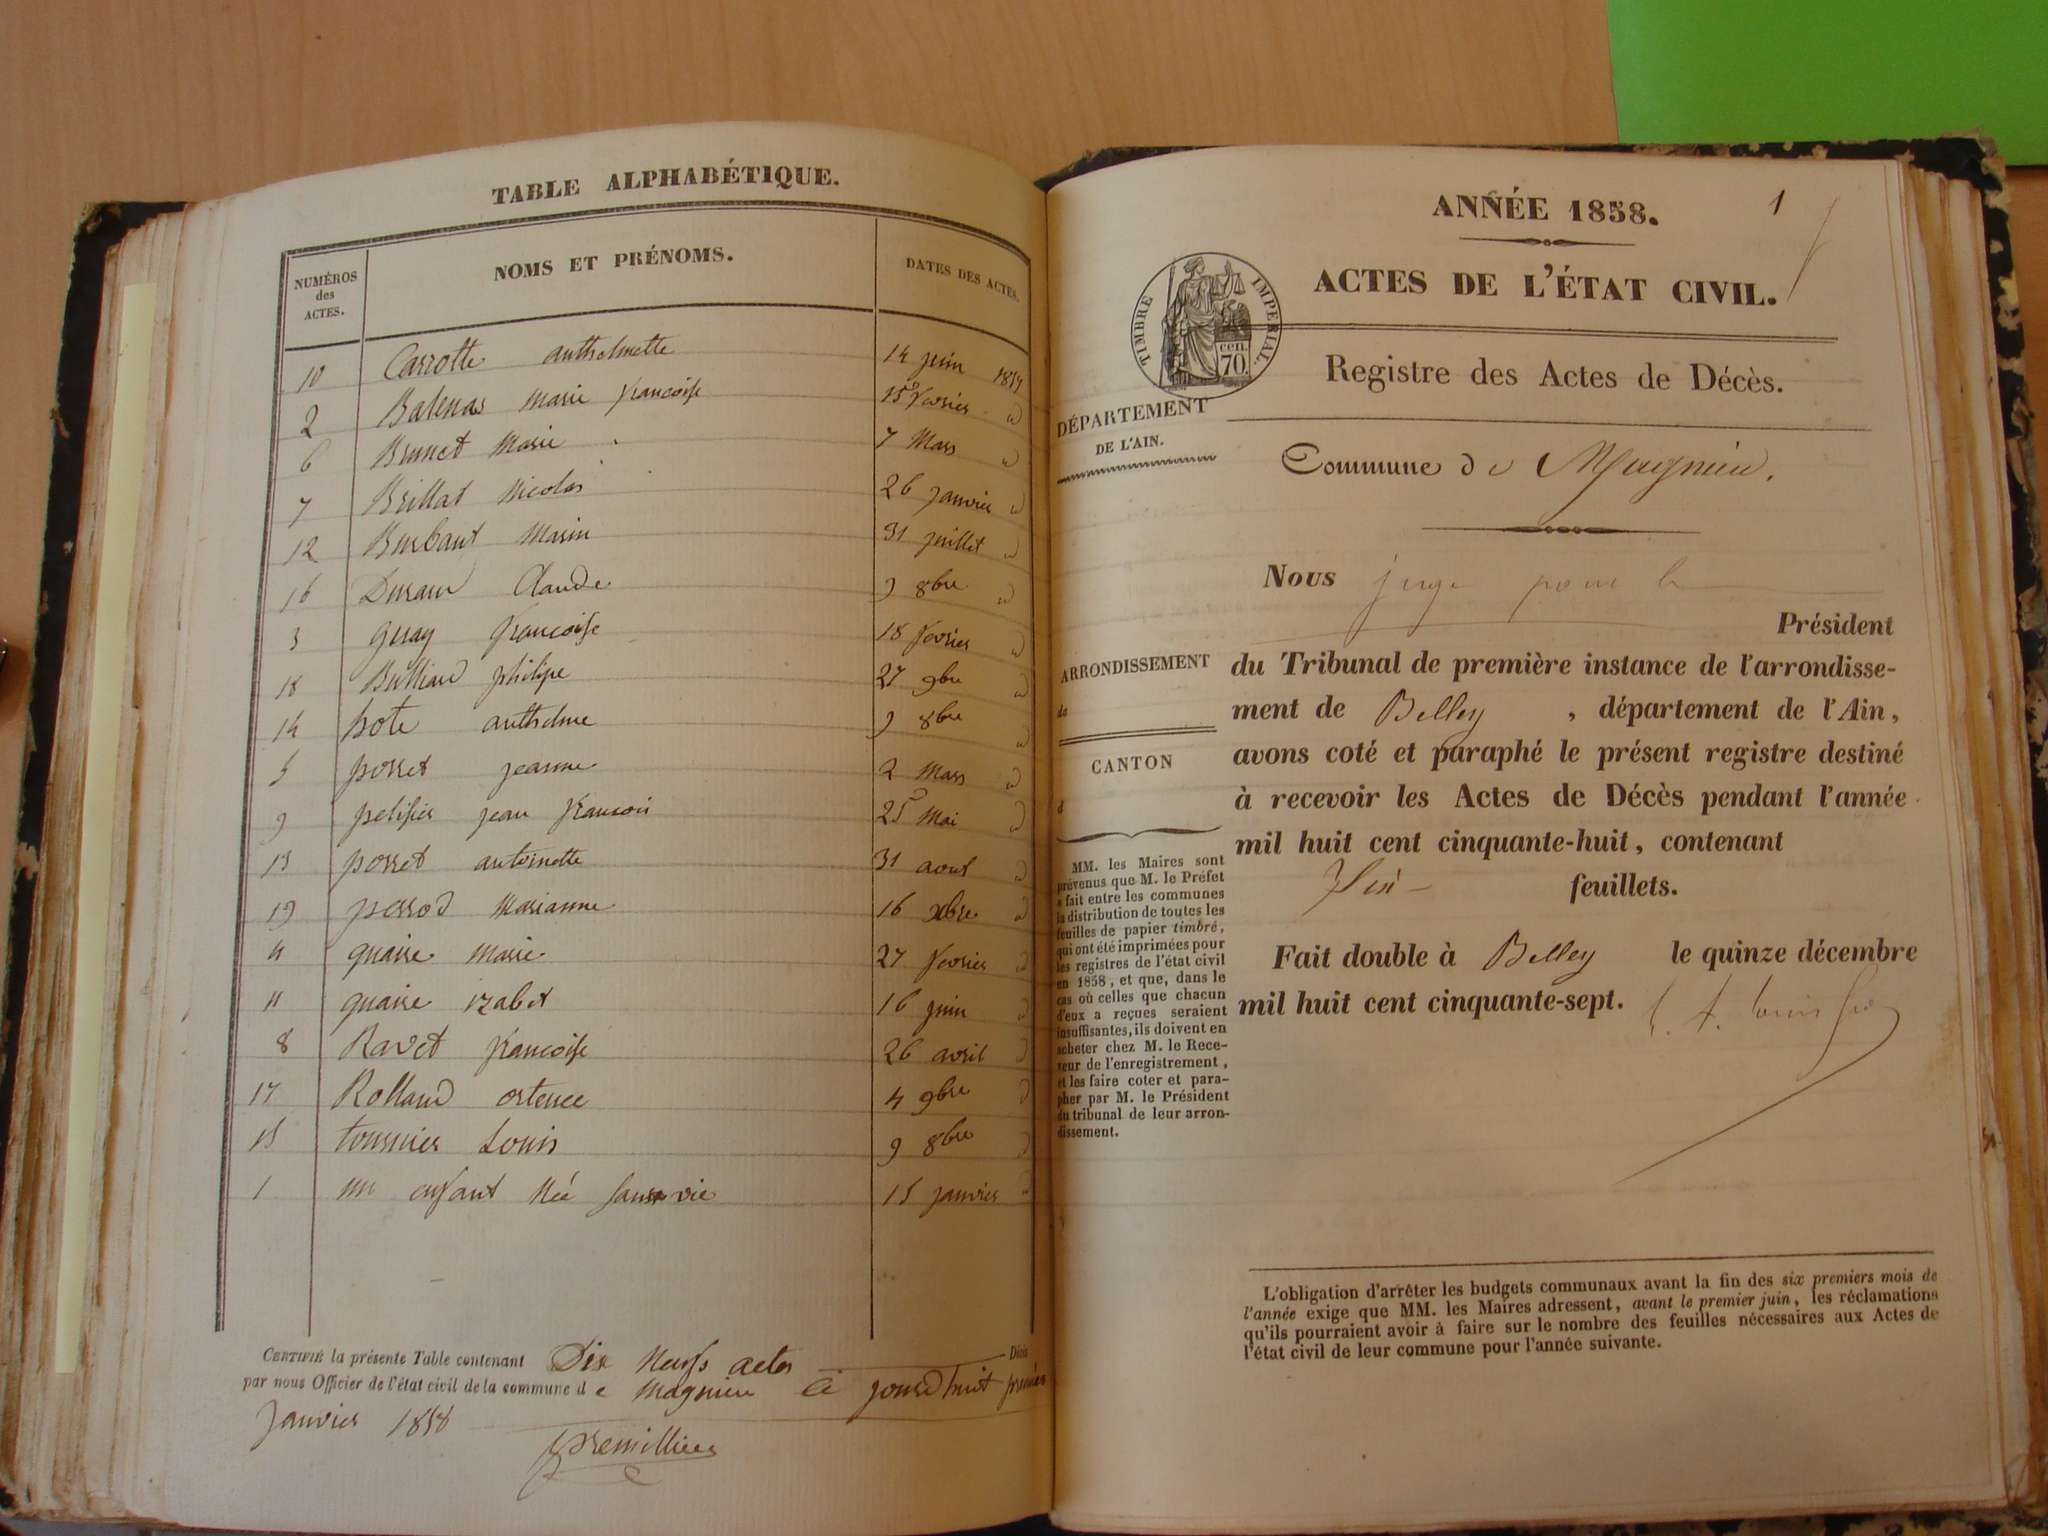 TABLE ALPHABÉTIQUE.
NUMÉROS des ACTES.
NOMS ET PRÉNOMS.
DATES DES ACTES.
10 Carrotte anthelmette 14 juin 1857
2 Balenas Marie françoise 15 fevrier "
6 Brunet Marie 7 Mars "
7 Brillat Nicolas 26 janvier "
12 Burbant Marin 31 juillet "
16 Durain Claude 9 8bre "
3 guay françoise 18 fevrier "
18 Bulliand philipe 27 9bre "
14 pote anthelme 9 8bre "
5 porret jeanne 2 Mars "
9 pelisier jean françois 25 Mai "
13 porret antoinette 31 aout "
19 perrod Marianne 16 xbre "
4 quaire Marie 27 fevrier "
11 quaire izabet 16 juin "
8 Ravet françoise 26 avril "
17 Rolland ortence 4 9bre "
15 tournier Louis 9 8bre "
1 un enfant Neé sans vie 15 janvier "
CERTIFIÉ la présente Table contenant Dix Neufs actes
par nous Officier de l'état civil de la commune de Magnieu Ce jourdhuit premier
Janvier 1858
premillieu
ANNÉE 1858. 1
ACTES DE L'ÉTAT CIVIL.
TIMBRE IMPERIAL.
cen.
70.
Registre des Actes de Décès.
DÉPARTEMENT
DE L'AIN.
Commune de Magnieu.
Nous juge pour le
Président
ARRONDISSEMENT
de
CANTON
d
du Tribunal de première instance de l'arrondisse-
ment de Belley , département de l'Ain,
avons coté et paraphé le présent registre destiné
à recevoir les Actes de Décès pendant l'année
mil huit cent cinquante-huit, contenant
feuillets.
Fait double à Belley le quinze décembre
mil huit cent cinquante-sept.
MM. les Maires sont
prévenus que M. le Préfet
a fait entre les communes
la distribution de toutes les
feuilles de papier timbré,
qui ont été imprimées pour
les registres de l'état civil
en 1858, et que, dans le
cas où celles que chacun
d'eux a reçues seraient
insuffisantes, ils doivent en
acheter chez M. le Rece-
veur de l'enregistrement,
et les faire coter et para-
pher par M. le Président
du tribunal de leur arron-
dissement.
L'obligation d'arrêter les budgets communaux avant la fin des six premiers mois de
l'année exige que MM. les Maires adressent, avant le premier juin, les réclamations
qu'ils pourraient avoir à faire sur le nombre des feuilles nécessaires aux Actes de
l'état civil de leur commune pour l'année suivante.